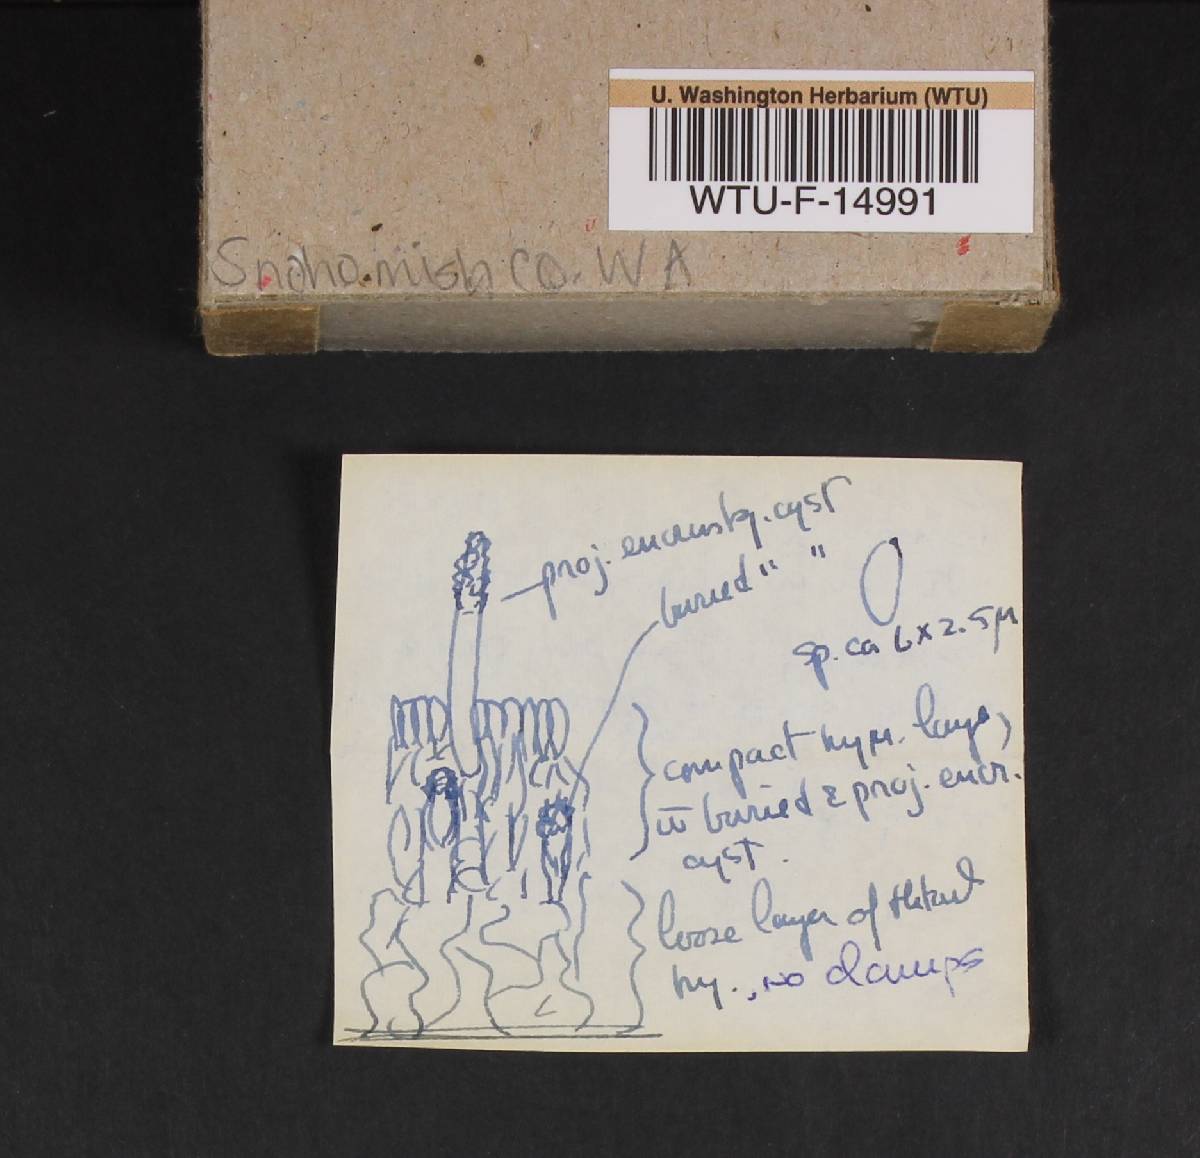 U. Washington Herbarium (WTU)
WTU-F-14991
Snohomish Co. WA
proj. encrust hy. cyst
buried " "
sp. ca 6 x 2.5 μ
compact hym. layer,
w̄ buried & proj. encr.
cyst.
loose layer of
hy., no clamps